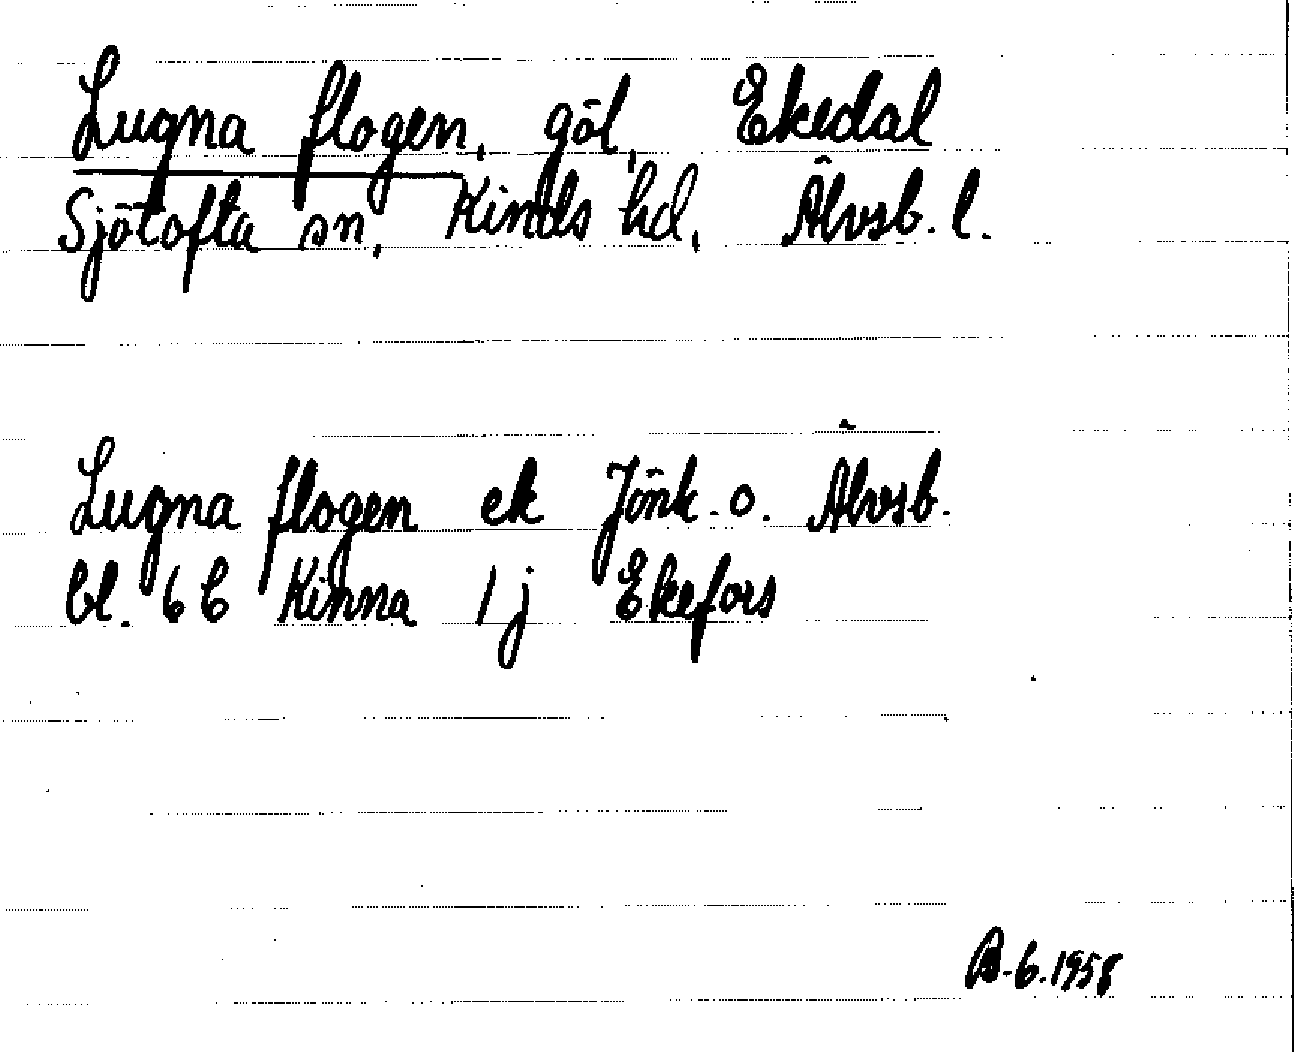 Lugna flogen, göl, Ekedal
Sjötofta sn, Kinds hd, Älvsb. l.
Lugna flogen ek Jönk. o. Älvsb.
bl. 6 b Kinna 1 j Ekefors
B-6.1958